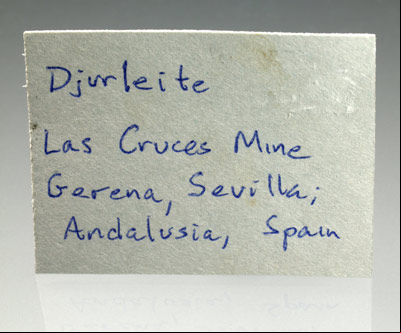 Djurleite
Las Cruces Mine
Gerena, Sevilla;
Andalusia, Spain